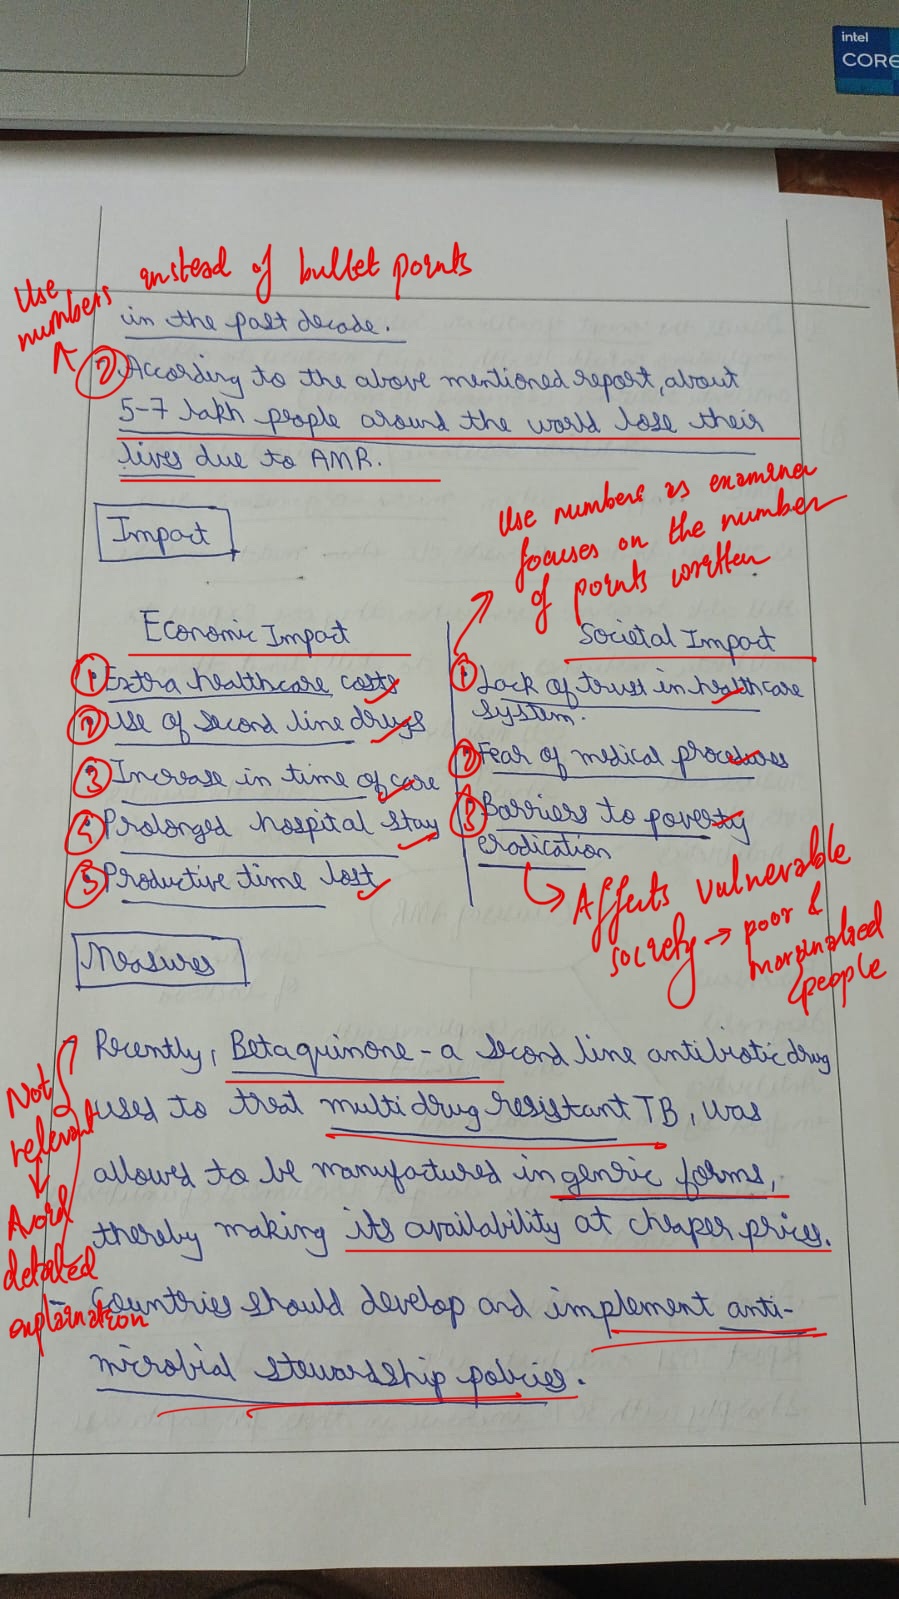 intel
CORE
Use numbers instead of bullet points
in the past decade.
② According to the above mentioned report, about
5-7 lakh people around the world lose their
lives due to AMR.
Impact
Use numbers as examiner
focuses on the number
of points written.
Economic Impact
① Extra healthcare costs
② Use of second line drugs
③ Increase in time of care
④ Prolonged hospital stay
⑤ Productive time lost
Societal Impact
① Lack of trust in healthcare
system.
② Fear of medical processes
③ Barriers to poverty
eradication
Affects vulnerable
society → poor &
marginalised
people
Measures
- Recently, Betaquinone - a second line antibiotic drug
used to treat multi drug resistant TB, was
allowed to be manufactured in generic forms,
thereby making its availability at cheaper prices.
- Countries should develop and implement anti-
microbial stewardship policies.
Not
relevant
↓
Avoid
detailed
explaination